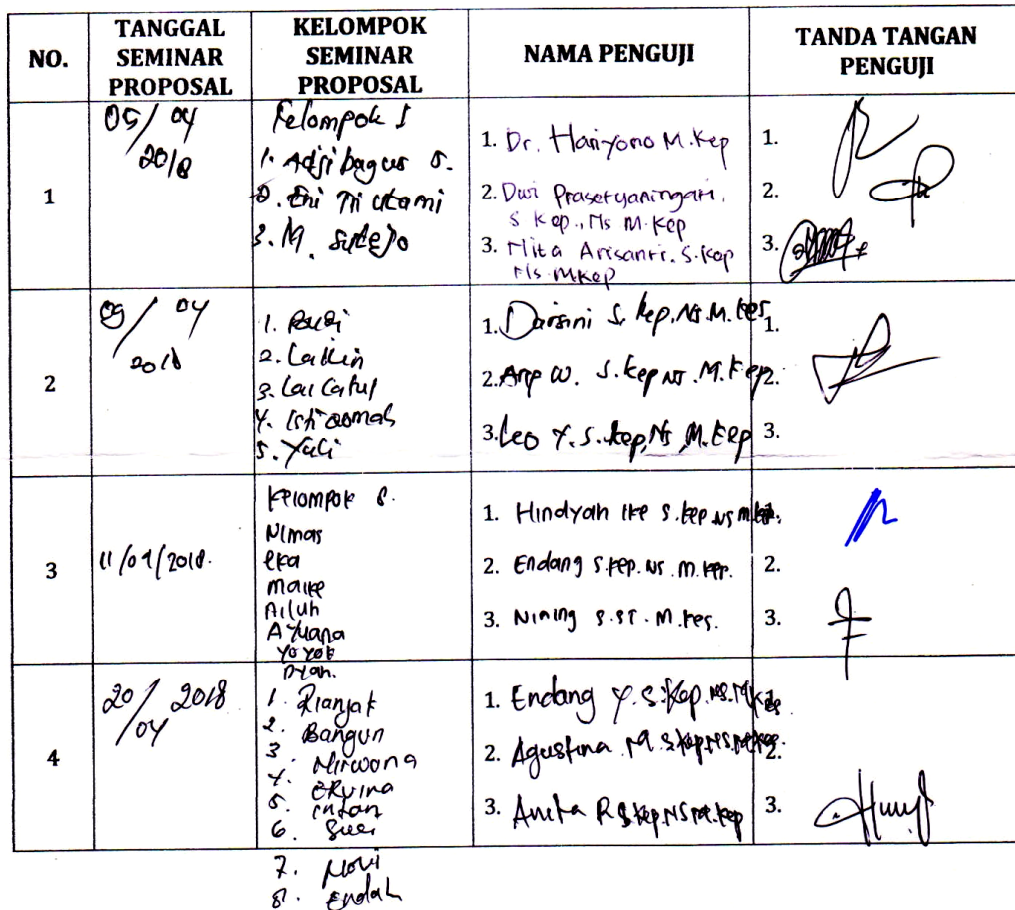 NO.
TANGGAL SEMINAR PROPOSAL
KELOMPOK SEMINAR PROPOSAL
NAMA PENGUJI
TANDA TANGAN PENGUJI
1
05/04
2018
Kelompok I
1. Adji bagus S.
2. Eni Tri Utami
3. M. Sutejo
1. Dr. Hariyono M.Kep
2. Dwi Prasetyaningati.
S Kep., Ns M.Kep
3. Mita Arisanti. S.Kep
Ns. M.Kep
1.
2.
3.
2
09/04
2018
1.
2.
3.
4.
5. Yuli
1. Darsini S.Kep.Ns.M.Kes
2. W. S.Kep Ns. M.Kep
3. Leo Y. S.Kep,Ns,M.Kep
1.
2.
3.
3
11/04/2018.
Kelompok 8.
Nimas
eka
maike
Ailuh
Ayuana
Yoyok
Dyah.
1. Hindyah Ike S.Kep.NS M.Kep.
2. Endang S.Kep.NS.M.Kep.
3. Nining S.ST. M.Kes.
1.
2.
3.
4
20/04 2018
1.
2. Bangun
3. Nirwana
4. Ervina
5. intan
6. Suci
7. Novi
8. Endah
1. Endang Y. S.Kep.NS.M.Kes
2. Agustina M. S.Kep.NS.
3. Anita R S.Kep.NS M.Kep
1.
2.
3.